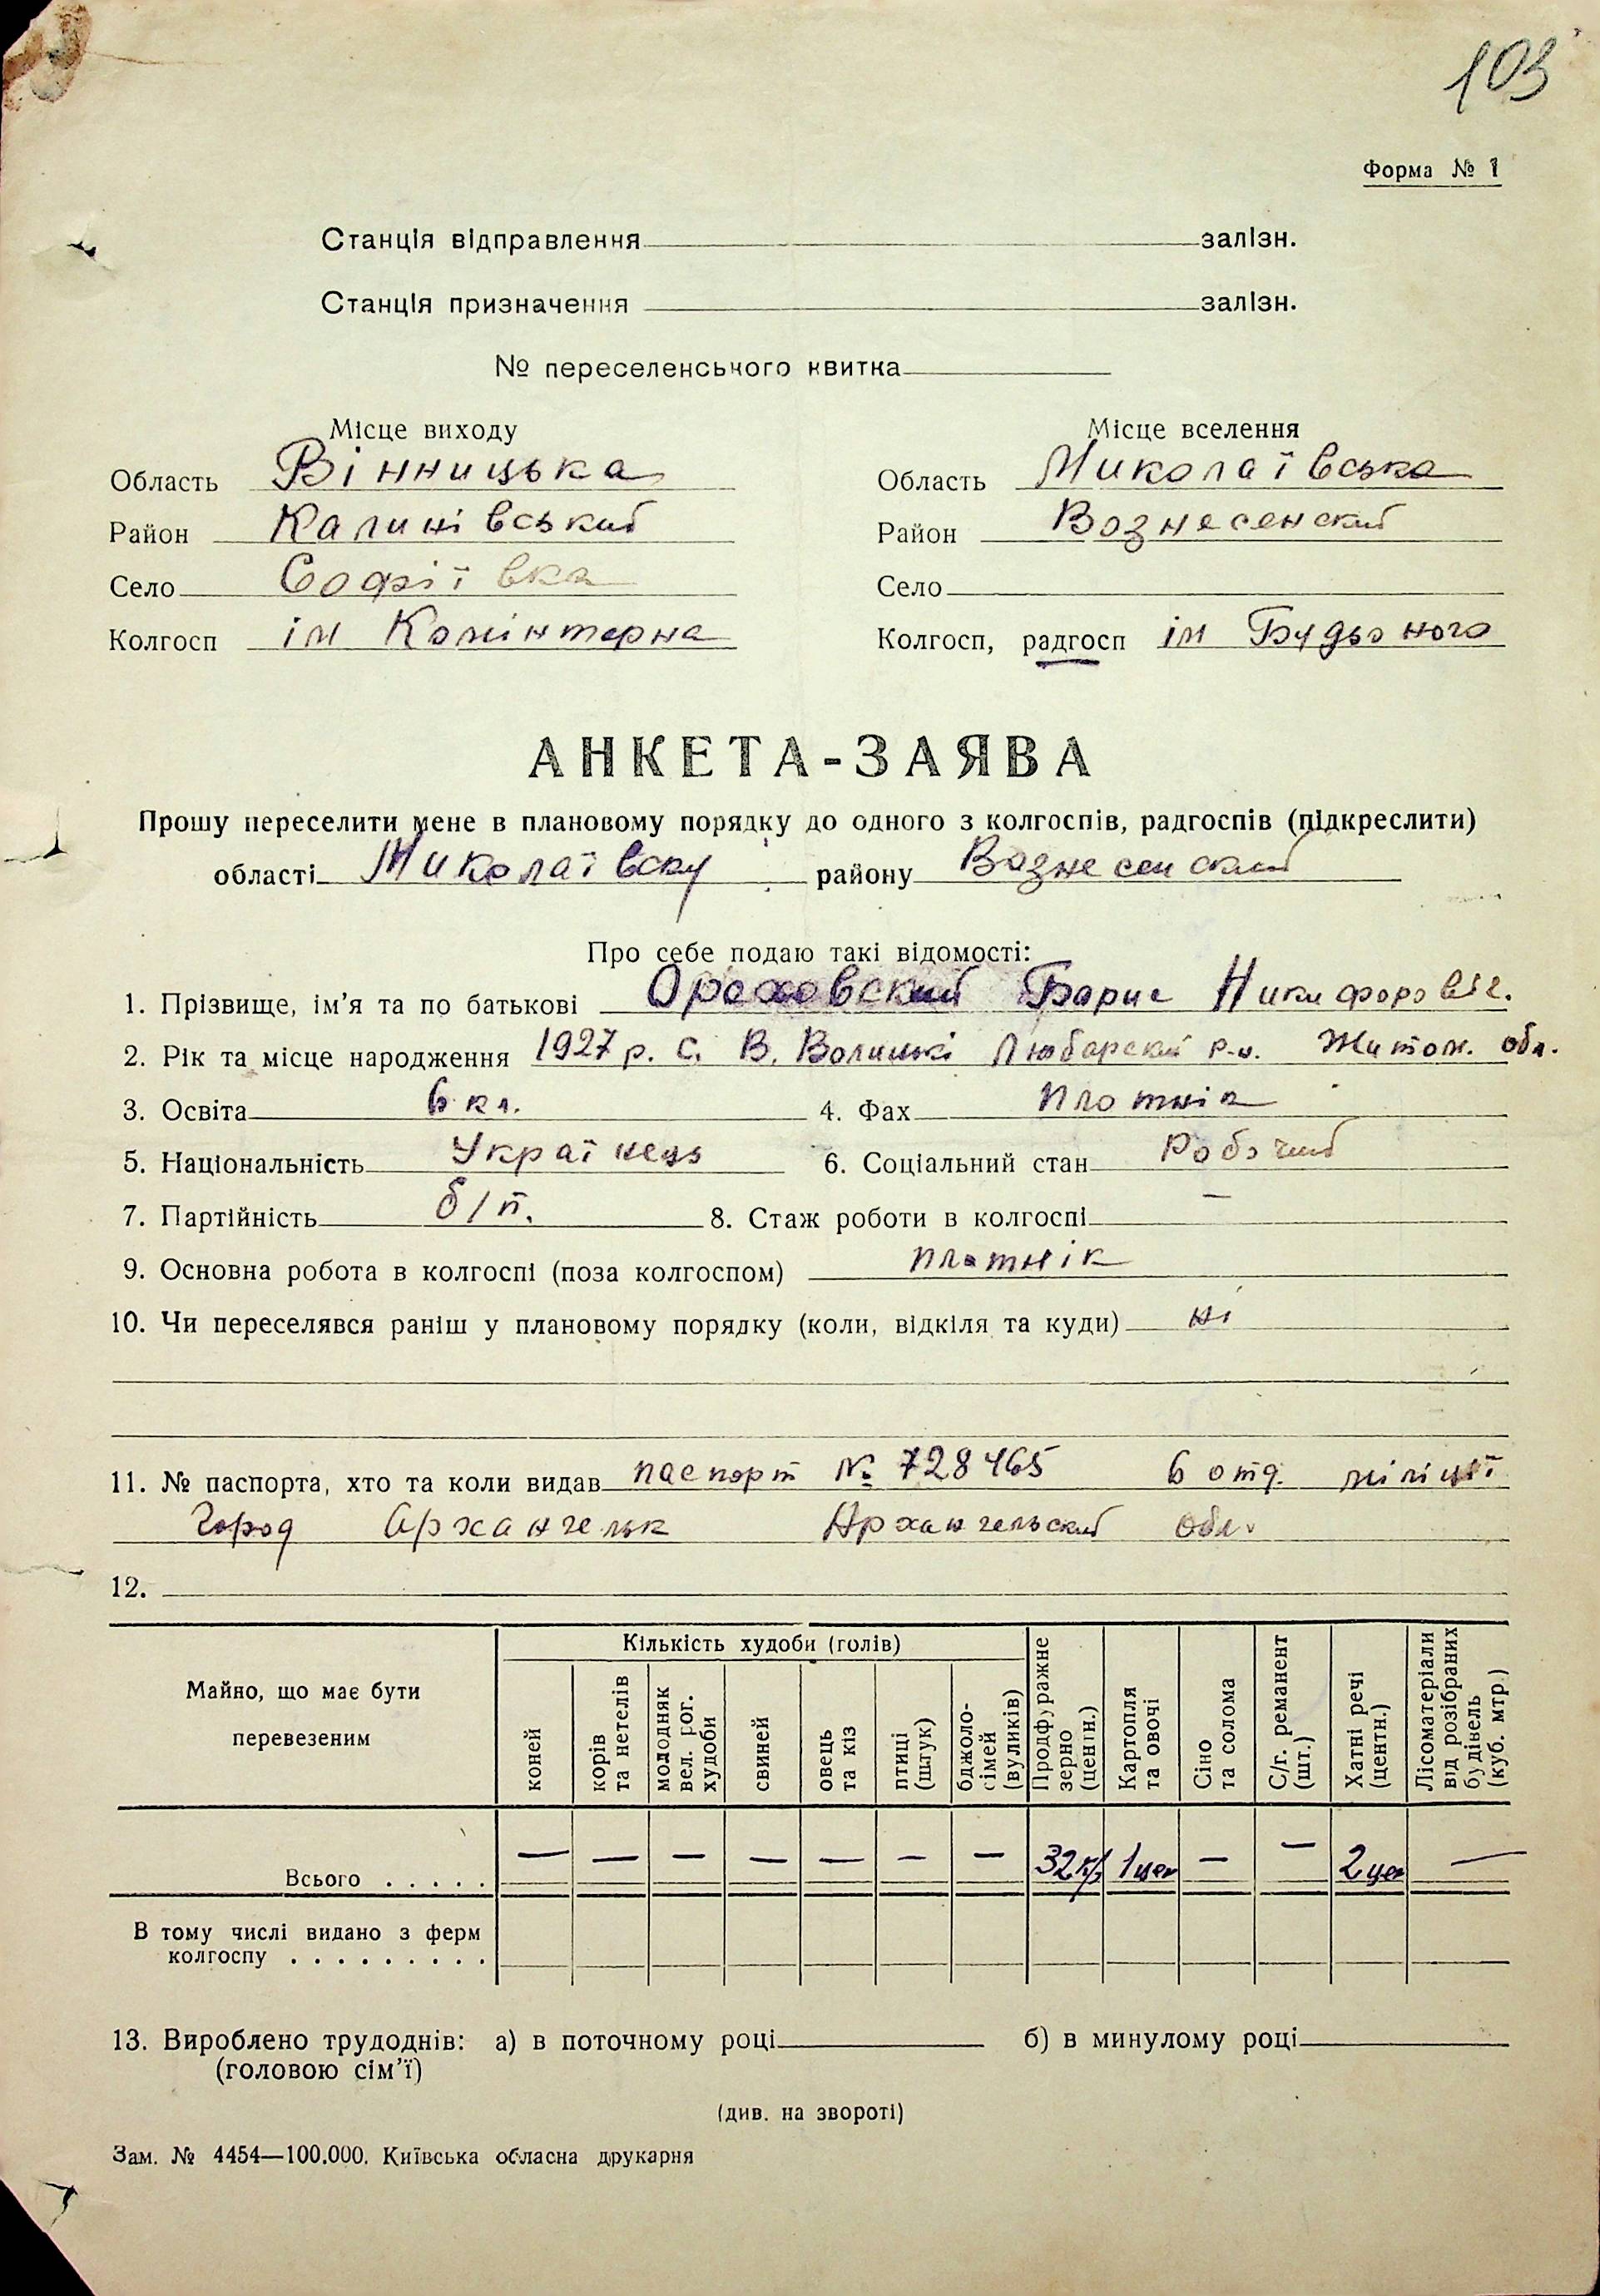 103
Форма № 1
Станція відправлення залізн.
Станція призначення залізн.
№ переселенського квитка
Місце виходу Місце вселення
Область Вінницька Область Миколаївська
Район Калинівський Район Вознесенский
Село Софіївка Село
Колгосп ім Комінтерна Колгосп, радгосп ім Будьоного
АНКЕТА-ЗАЯВА
Прошу переселити мене в плановому порядку до одного з колгоспів, радгоспів (підкреслити)
області Миколаївску району Вознесенский
Про себе подаю такі відомості:
1. Прізвище, ім'я та по батькові Борис Никифоровіч.
2. Рік та місце народження 1927 р. с. В. Волицькі Любарский р-н. Житом. обл.
3. Освіта 6 кл. 4. Фах Плотнік
5. Національність Українець 6. Соціальний стан Робочий
7. Партійність б/п. 8. Стаж роботи в колгоспі —
9. Основна робота в колгоспі (поза колгоспом) плотнік
10. Чи переселявся раніш у плановому порядку (коли, відкіля та куди) ні
11. № паспорта, хто та коли видав паспорт № 728465 6 отд. міліції
город Архангельк Архангельский обл.
12.
Майно, що має бути перевезеним
Кількість худоби (голів)
коней
корів та нетелів
молодняк вел. рог. худоби
свиней
овець та кіз
птиці (штук)
бджоло-сімей (вуликів)
Продфуражне зерно (центн.)
Картопля та овочі
Сіно та солома
С/г. реманент (шт.)
Хатні речі (центн.)
Лісоматеріали від розібраних будівель (куб. мтр.)
Всього . . . . . — — — — — — — 32 1 цен — — 2 цен —
В тому числі видано з ферм
колгоспу . . . . . . . . .
13. Вироблено трудоднів: а) в поточному році б) в минулому році
(головою сім'ї)
(див. на звороті)
Зам. № 4454—100.000. Київська обласна друкарня